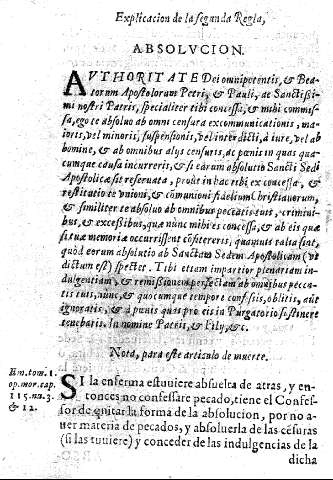 Explicacion de la segunda Regla,
ABSOLVCION.
AVTHORITATE Dei omnipotentis, & Bea-
torum Apostolorum Petri, & Pauli, ac Sanctissi-
mi nostri Patris, specialiter tibi concessa, & mihi commis-
sa, ego te absoluo ab omni censura excommunicationis, ma-
ioris, vel minoris, suspensionis, vel interdicti, à iure, vel ab
homine, & ab omnibus alijs censuris, ac pœnis in quas qua-
cumque causa incurreris, & si earum absolutio Sancta Sedi
Apostolicæ sit reseruata, prout in hac tibi ex concessa, &
restituo te vnioni, & comunioni fidelium Christianorum,
& similiter te absoluo ab omnibus peccatis tuis, crimini-
bus, & excessibus, quæ nunc mihi es concessa, & ab eis quæ
si tuæ memoriæ occurrissent côfitereris, quamuis talia sint,
quòd eorum absolutio ab Sanctam Sedem Apostolicam (vt
dictum est) spectet. Tibi etiam impartior plenariam in-
dulgentiam, & remissionem perfectam ab omnibus pecca-
tis tuis, nunc, & quocumque tempore confessis, oblitis, aut
ignoratis, & à pœnis quas pro eis in Purgatorio sustinere
tenebaris. In nomine Patris, & Filij, &c.
Nota, para este articulo de muerte.
Em. tom. 1.
op. mor. cap.
115. nu. 3.
& 12.
SI la enferma estuuiere absuelta de atras, y en-
tonces no confessare pecado, tiene el Confes-
sor de quitar la forma de la absolucion, por no a-
uer materia de pecados, y absoluerla de las cēsuras
(si las tuuiere) y conceder de las indulgencias de la
dicha